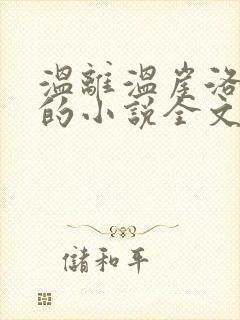 温離温崖洛
的小說全文
儲和平